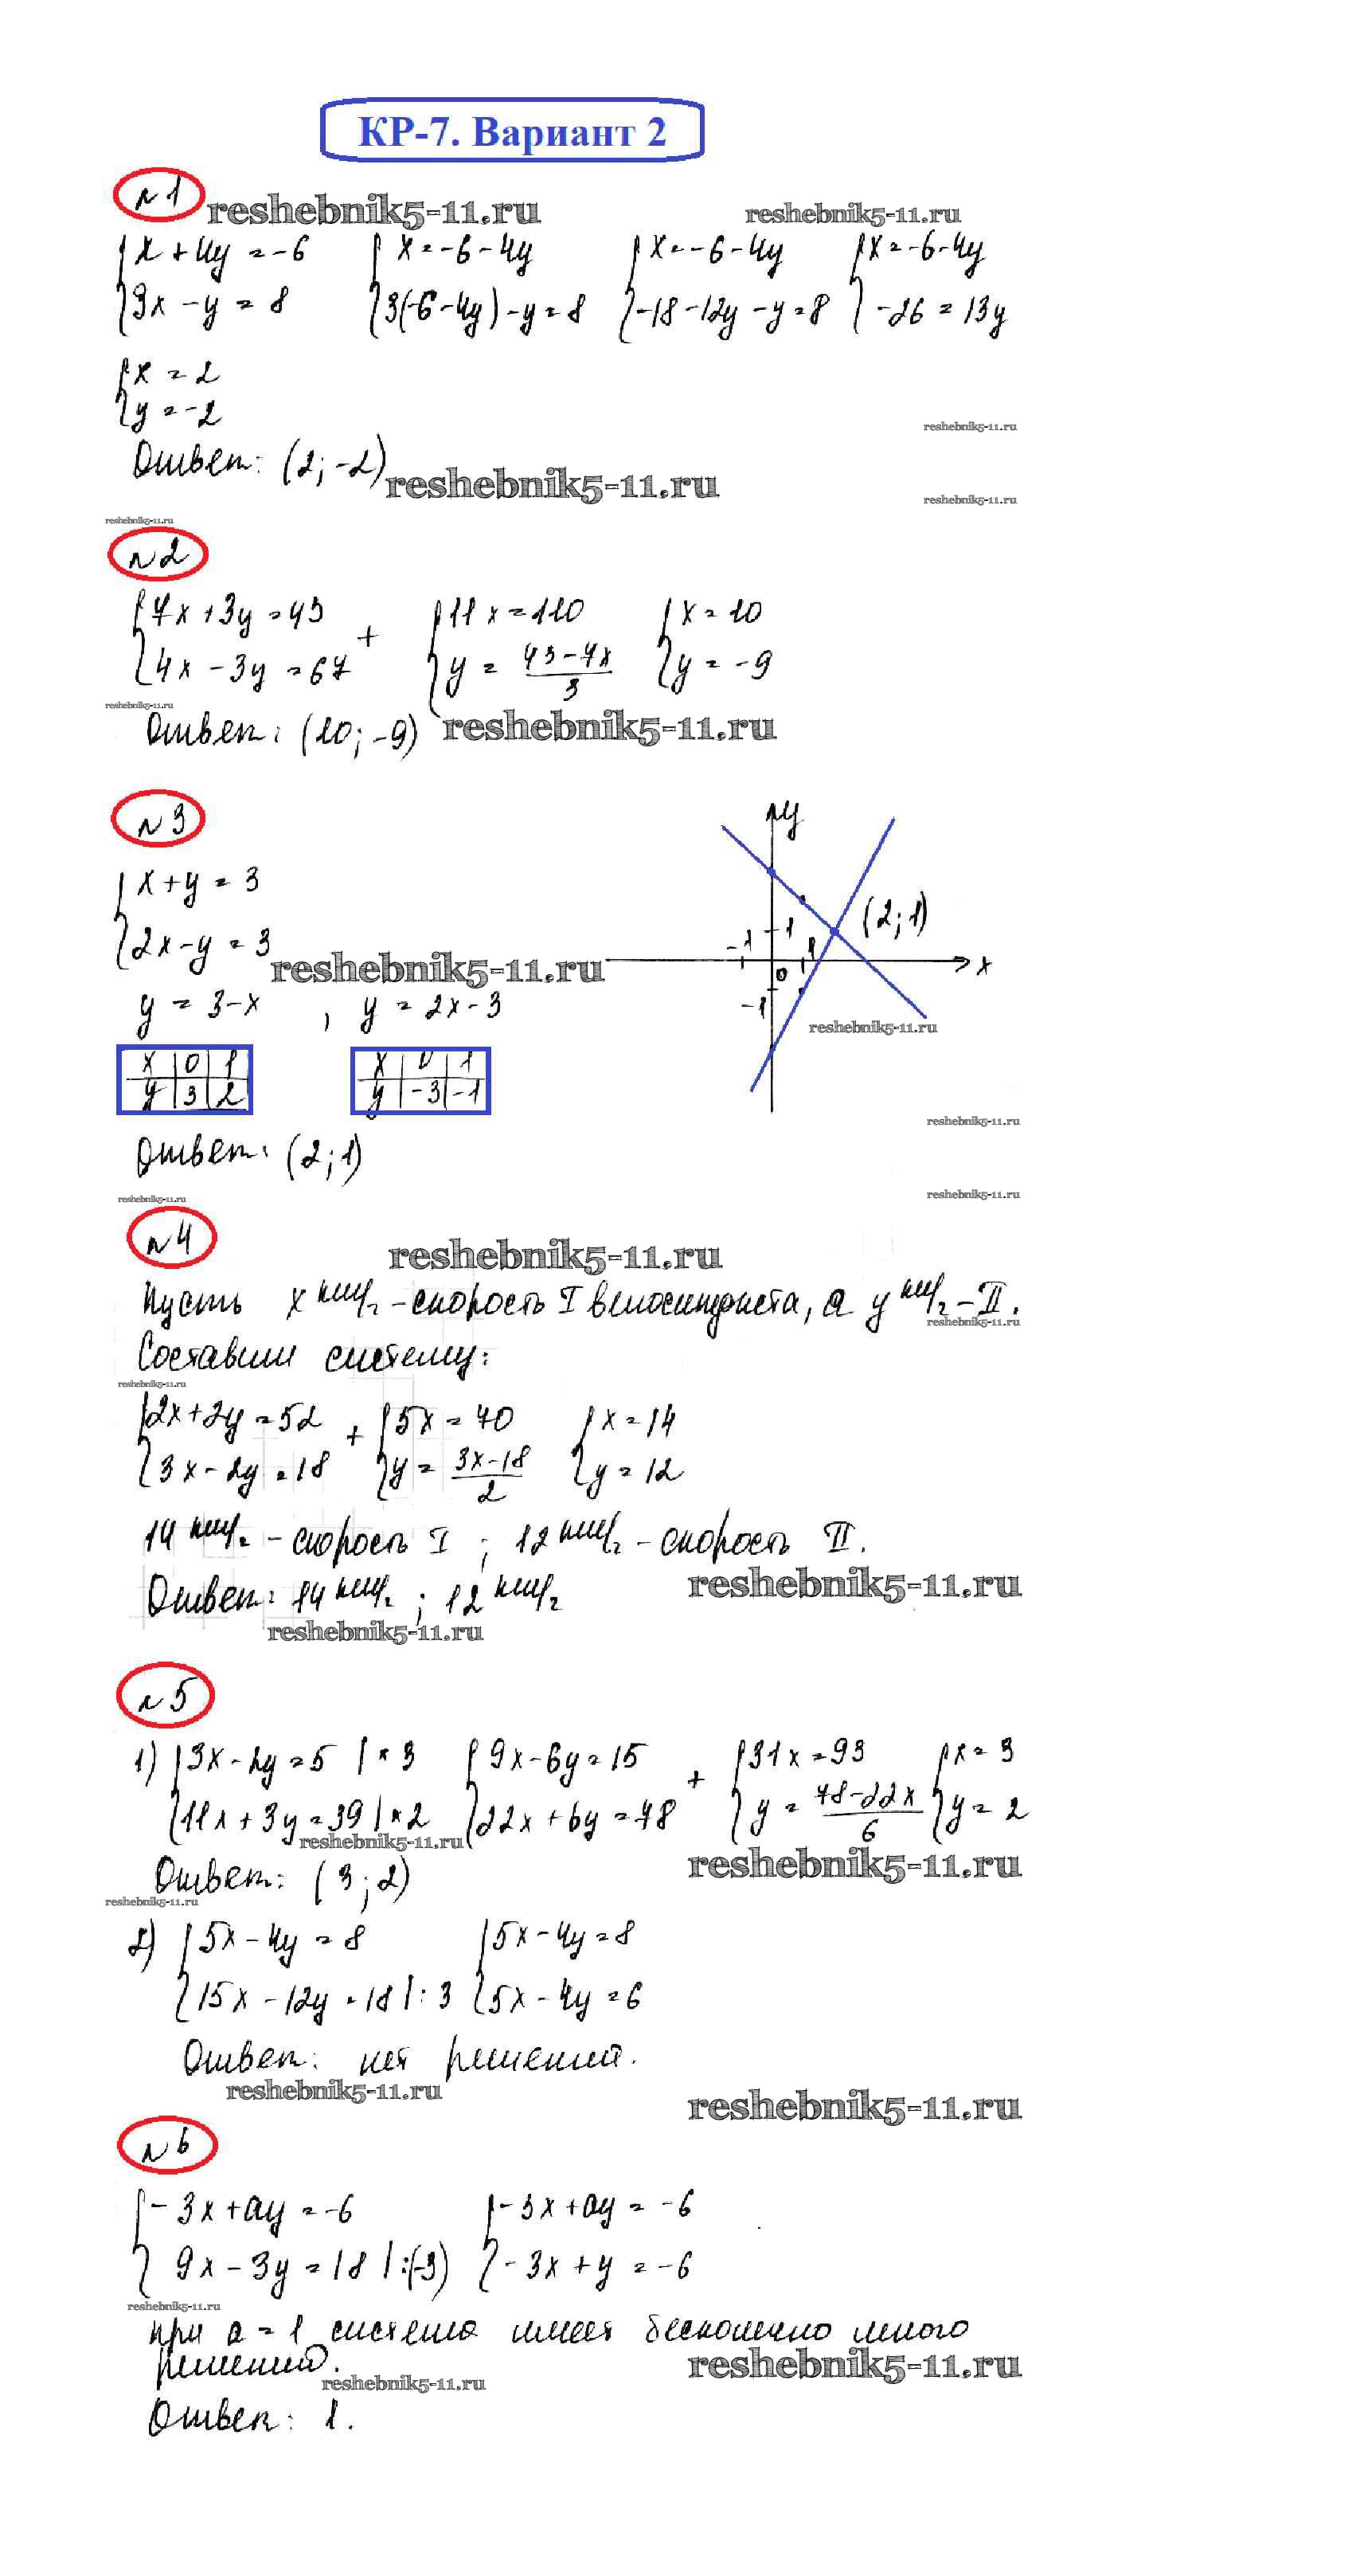 КР-7. Вариант 2
№1
reshebnik5-11.ru reshebnik5-11.ru
{x + 4y = -6 {x = -6 - 4y {x = -6 - 4y {x = -6 - 4y
{3x - y = 8 {3(-6 - 4y) - y = 8 {-18 - 12y - y = 8 {-26 = 13y
{x = 2
{y = -2
reshebnik5-11.ru
Ответ: (2; -2)
reshebnik5-11.ru
reshebnik5-11.ru
reshebnik5-11.ru
№2
{7x + 3y = 43 + {11x = 110 {x = 10
{4x - 3y = 67 {y = (43 - 7x)/3 {y = -9
reshebnik5-11.ru
Ответ: (10; -9) reshebnik5-11.ru
№3
y
{x + y = 3
(2; 1)
{2x - y = 3
-1 1 1
reshebnik5-11.ru
0 x
-1
y = 3 - x , y = 2x - 3
reshebnik5-11.ru
x 0 1 x 0 1
y 3 2 y -3 -1
reshebnik5-11.ru
Ответ: (2; 1)
reshebnik5-11.ru reshebnik5-11.ru
№4
reshebnik5-11.ru
Пусть x км/ч - скорость I велосипедиста, а y км/ч - II.
reshebnik5-11.ru
Составим систему:
reshebnik5-11.ru
{2x + 2y = 52 + {5x = 70 {x = 14
{3x - 2y = 18 {y = (3x - 18)/2 {y = 12
14 км/ч - скорость I ; 12 км/ч - скорость II.
Ответ: 14 км/ч ; 12 км/ч
reshebnik5-11.ru
reshebnik5-11.ru
№5
1) {3x - 2y = 5 | * 3 {9x - 6y = 15 + {31x = 93 {x = 3
{11x + 3y = 39 | * 2 {22x + 6y = 78 {y = (78 - 22x)/6 {y = 2
reshebnik5-11.ru
reshebnik5-11.ru
Ответ: (3; 2)
reshebnik5-11.ru
2) {5x - 4y = 8 {5x - 4y = 8
{15x - 12y = 18 | : 3 {5x - 4y = 6
Ответ: нет решений.
reshebnik5-11.ru
reshebnik5-11.ru
№6
{-3x + ay = -6 {-3x + ay = -6
{9x - 3y = 18 | :(-3) {-3x + y = -6
reshebnik5-11.ru
при a = 1 система имеет бесконечно много
решений.
reshebnik5-11.ru
reshebnik5-11.ru
Ответ: 1.